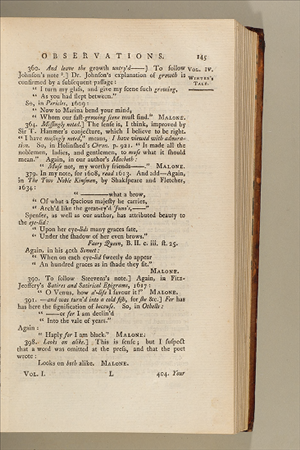 OBSERVATIONS. 145
360. And leave the growth untry'd——] To follow
VOL. IV.
WINTER'S
TALE.
Johnson's note.] Dr. Johnson's explanation of growth is
confirmed by a subsequent passage:
" I turn my glass, and give my scene such growing,
" As you had slept between."
So, in Pericles, 1609:
" Now to Marina bend your mind,
" Whom our fast-growing scene must find." MALONE.
364. Missingly noted.] The sense is, I think, improved by
Sir T. Hanmer's conjecture, which I believe to be right.
" I have musingly noted," means, I have viewed with admira-
tion. So, in Holinshed's Chron. p. 921. " It made all the
noblemen, ladies, and gentlemen, to muse what it should
mean." Again, in our author's Macbeth:
" Muse not, my worthy friends——" MALONE.
379. In my note, for 1608, read 1613. And add—Again,
in The Two Noble Kinsmen, by Shakspeare and Fletcher,
1634:
" ——what a brow,
" Of what a spacious majesty he carries,
" Arch'd like the great-ey'd Juno's,——"
Spenser, as well as our author, has attributed beauty to
the eye-lid:
" Upon her eye-lids many graces sate,
" Under the shadow of her even brows."
Faery Queen, B. II. c. iii. st. 25.
Again, in his 40th Sonnet:
" When on each eye-lid sweetly do appear
" An hundred graces as in shade they sit."
MALONE.
390. To follow Steevens's note.] Again, in Fitz-
Jeoffery's Satires and Satirical Epigrams, 1617:
" O Venus, how a'-life I favour it!" MALONE.
391. —and was turn'd into a cold fish, for she &c.] For has
has here the signification of because. So, in Othello:
" —or for I am declin'd
" Into the vale of years."
Again:
" Haply for I am black." MALONE.
398. Looks on alike.] This is sense; but I suspect
that a word was omitted at the press, and that the poet
wrote:
Looks on both alike. MALONE.
VOL. I. L 404. Your